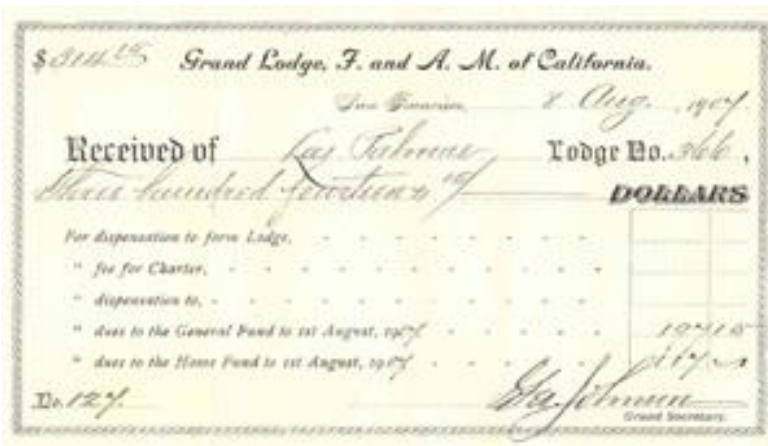 $314 15 Grand Lodge, F. and A. M. of California.
San Francisco, 8 Aug. 1907
Received of Las Palmas Lodge No. 366,
Three hundred fourteen & 15/ DOLLARS
For dispensation to form Lodge,
" fee for Charter,
" dispensation to,
" dues to the General Fund to 1st August, 1907
" dues to the Home Fund to 1st August, 1907
No. 127. Johnson
Grand Secretary.